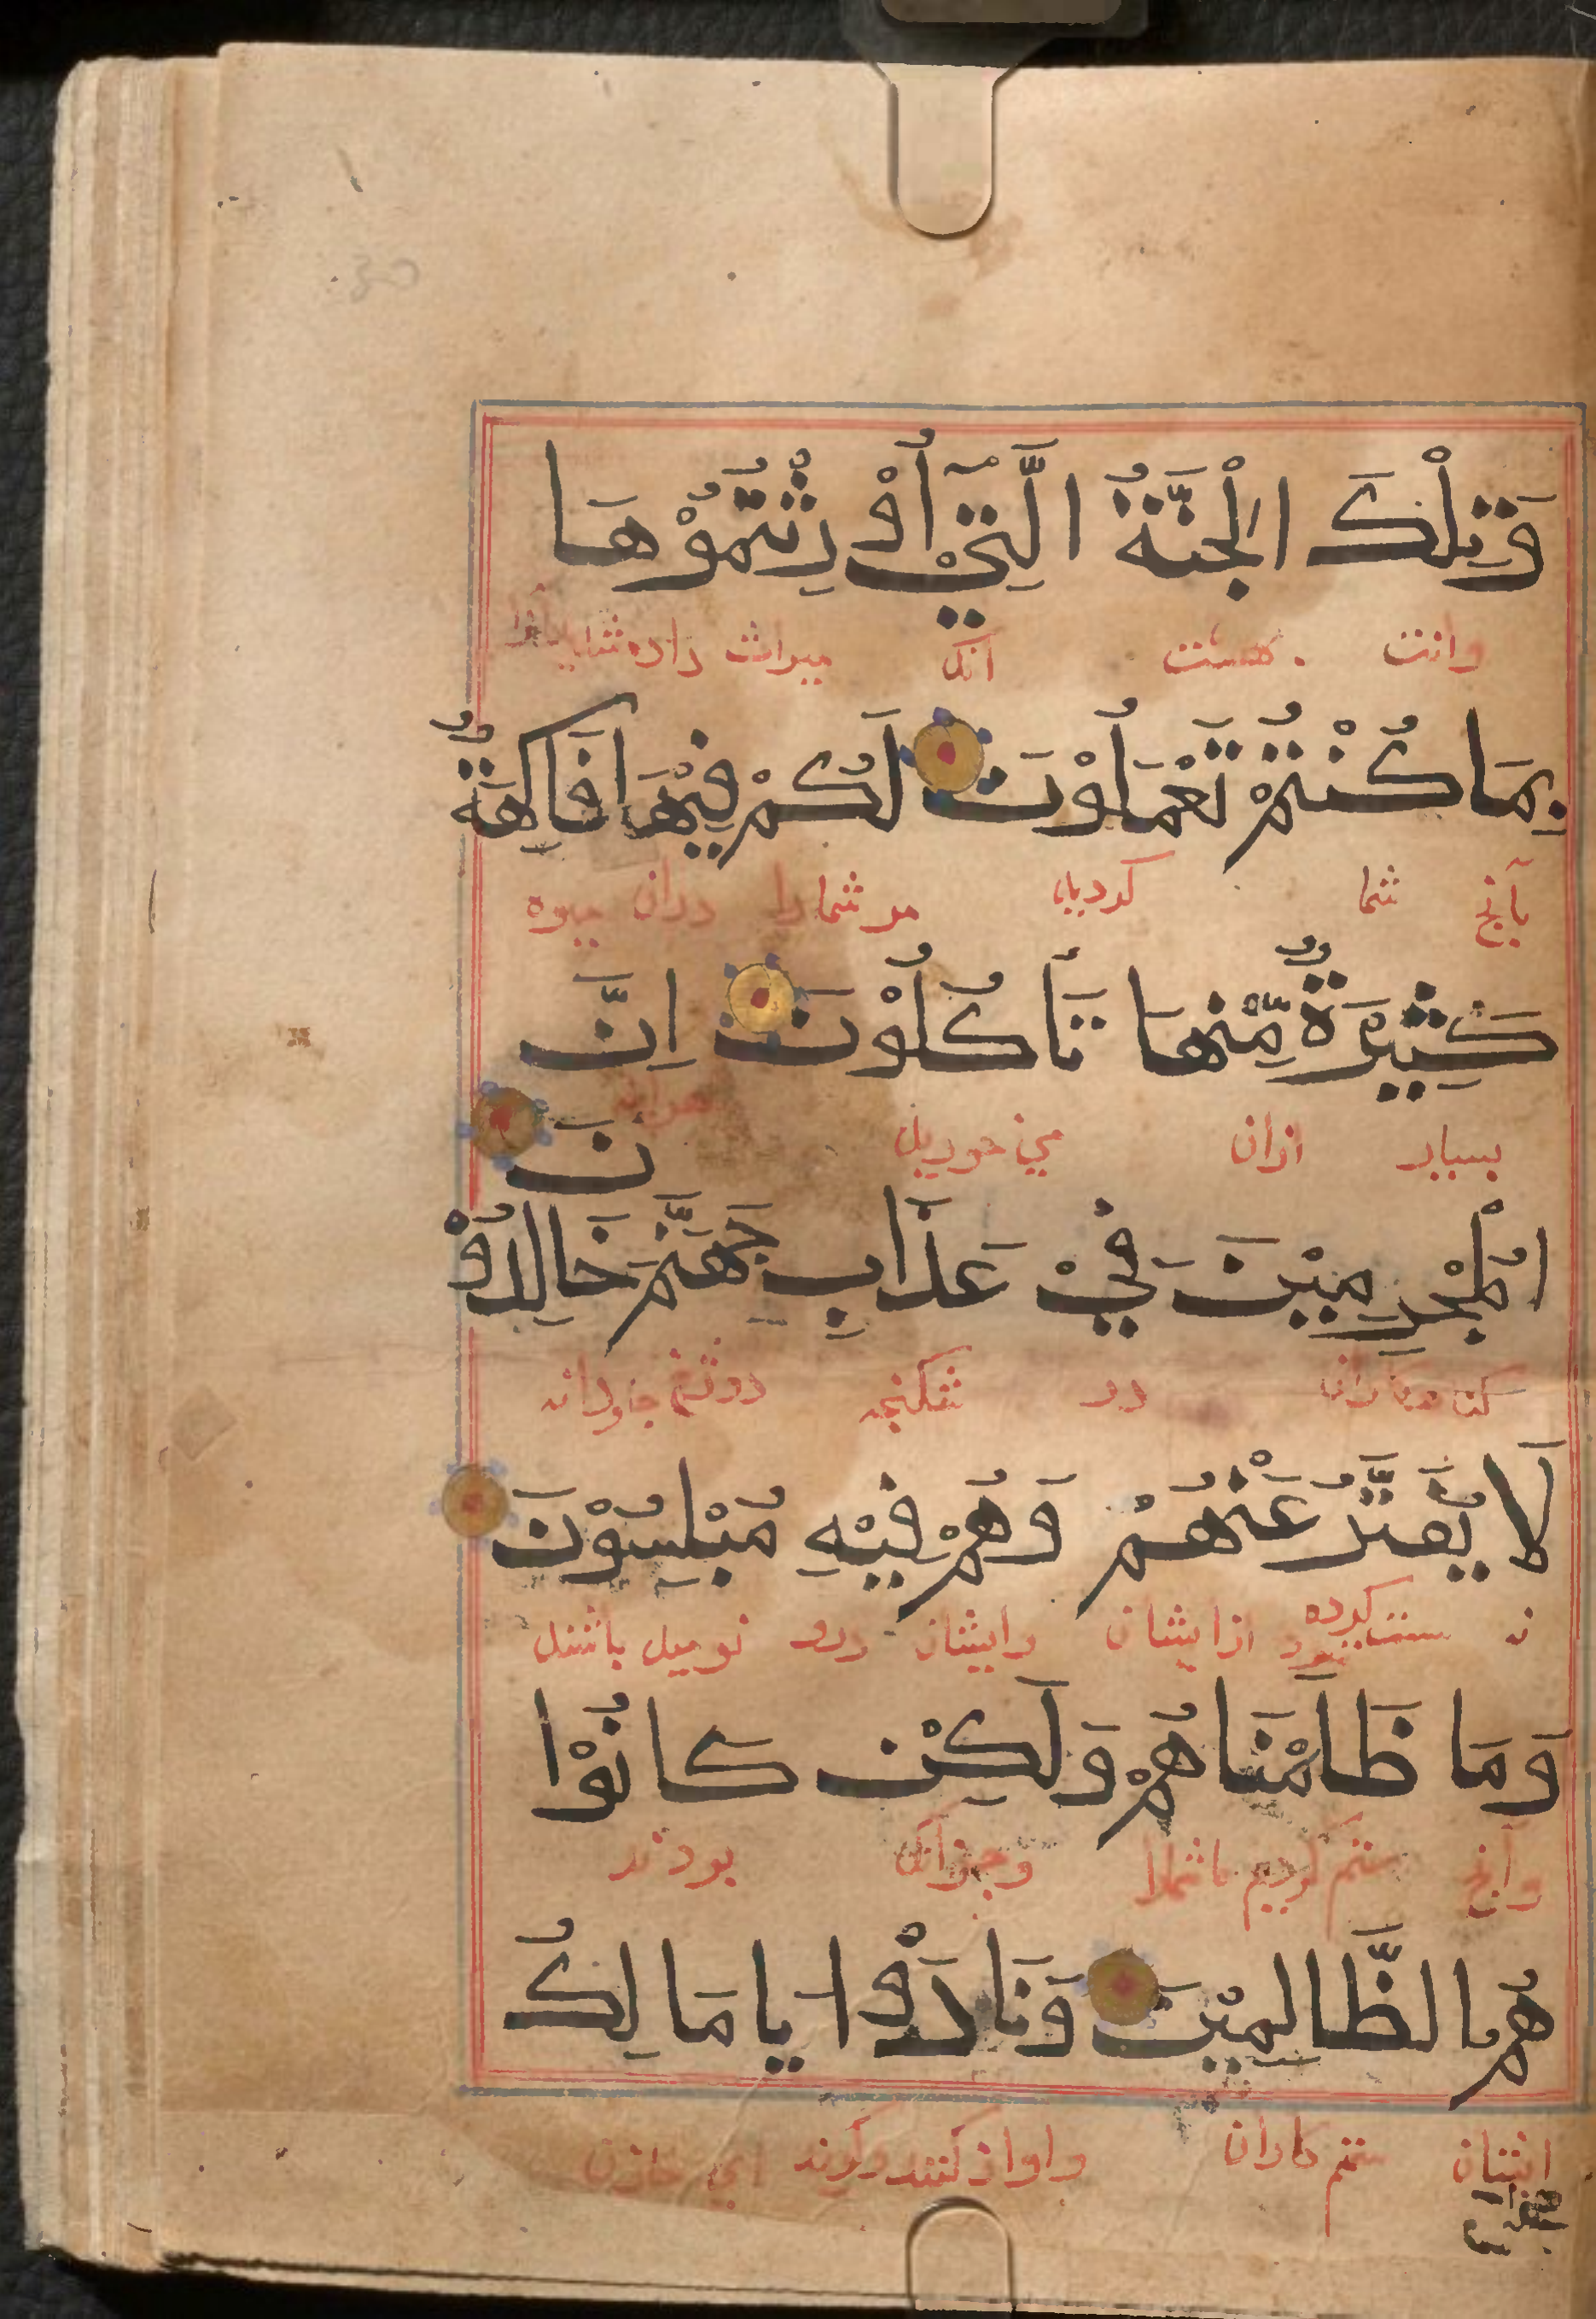 وَتِلْكَ الْجَنَّةُ الَّتِيْٓ أُوْرِثْتُمُوْهَا
وانت بهشت انك ميراث داده شديد
بِمَا كُنْتُمْ تَعْمَلُوْنَ لَكُمْ فِيْهَا فَاكِهَةٌ
بآنچ شما كرديد مر شما را دران ميوه
كَثِيْرَةٌ مِّنْهَا تَأكُلُوْنَ اِنَّ
بسيار ازان مي خوريد هراينه
نَ
الْمُجْرِمِيْنَ فِيْ عَذَابِ جَهَنَّمَ خَالِدُوْ
در شكنجه دوزخ جاودانه
لَا يُفَتَّرُ عَنْهُمْ وَهُمْ فِيْهِ مُبْلِسُوْنَ
نه سست كرده شود از ايشان وايشان درو نوميد باشند
وَمَا ظَلَمْنَاهُمْ وَلَكِنْ كَانُوْا
وآنچ ستم كرديم ما وجز آنك بودند
هُمُ الظَّالِمِيْنَ وَنَادَوْا يَا مَالِكُ
ايشان ستم كاران واواز كنند وكويند اي خازن